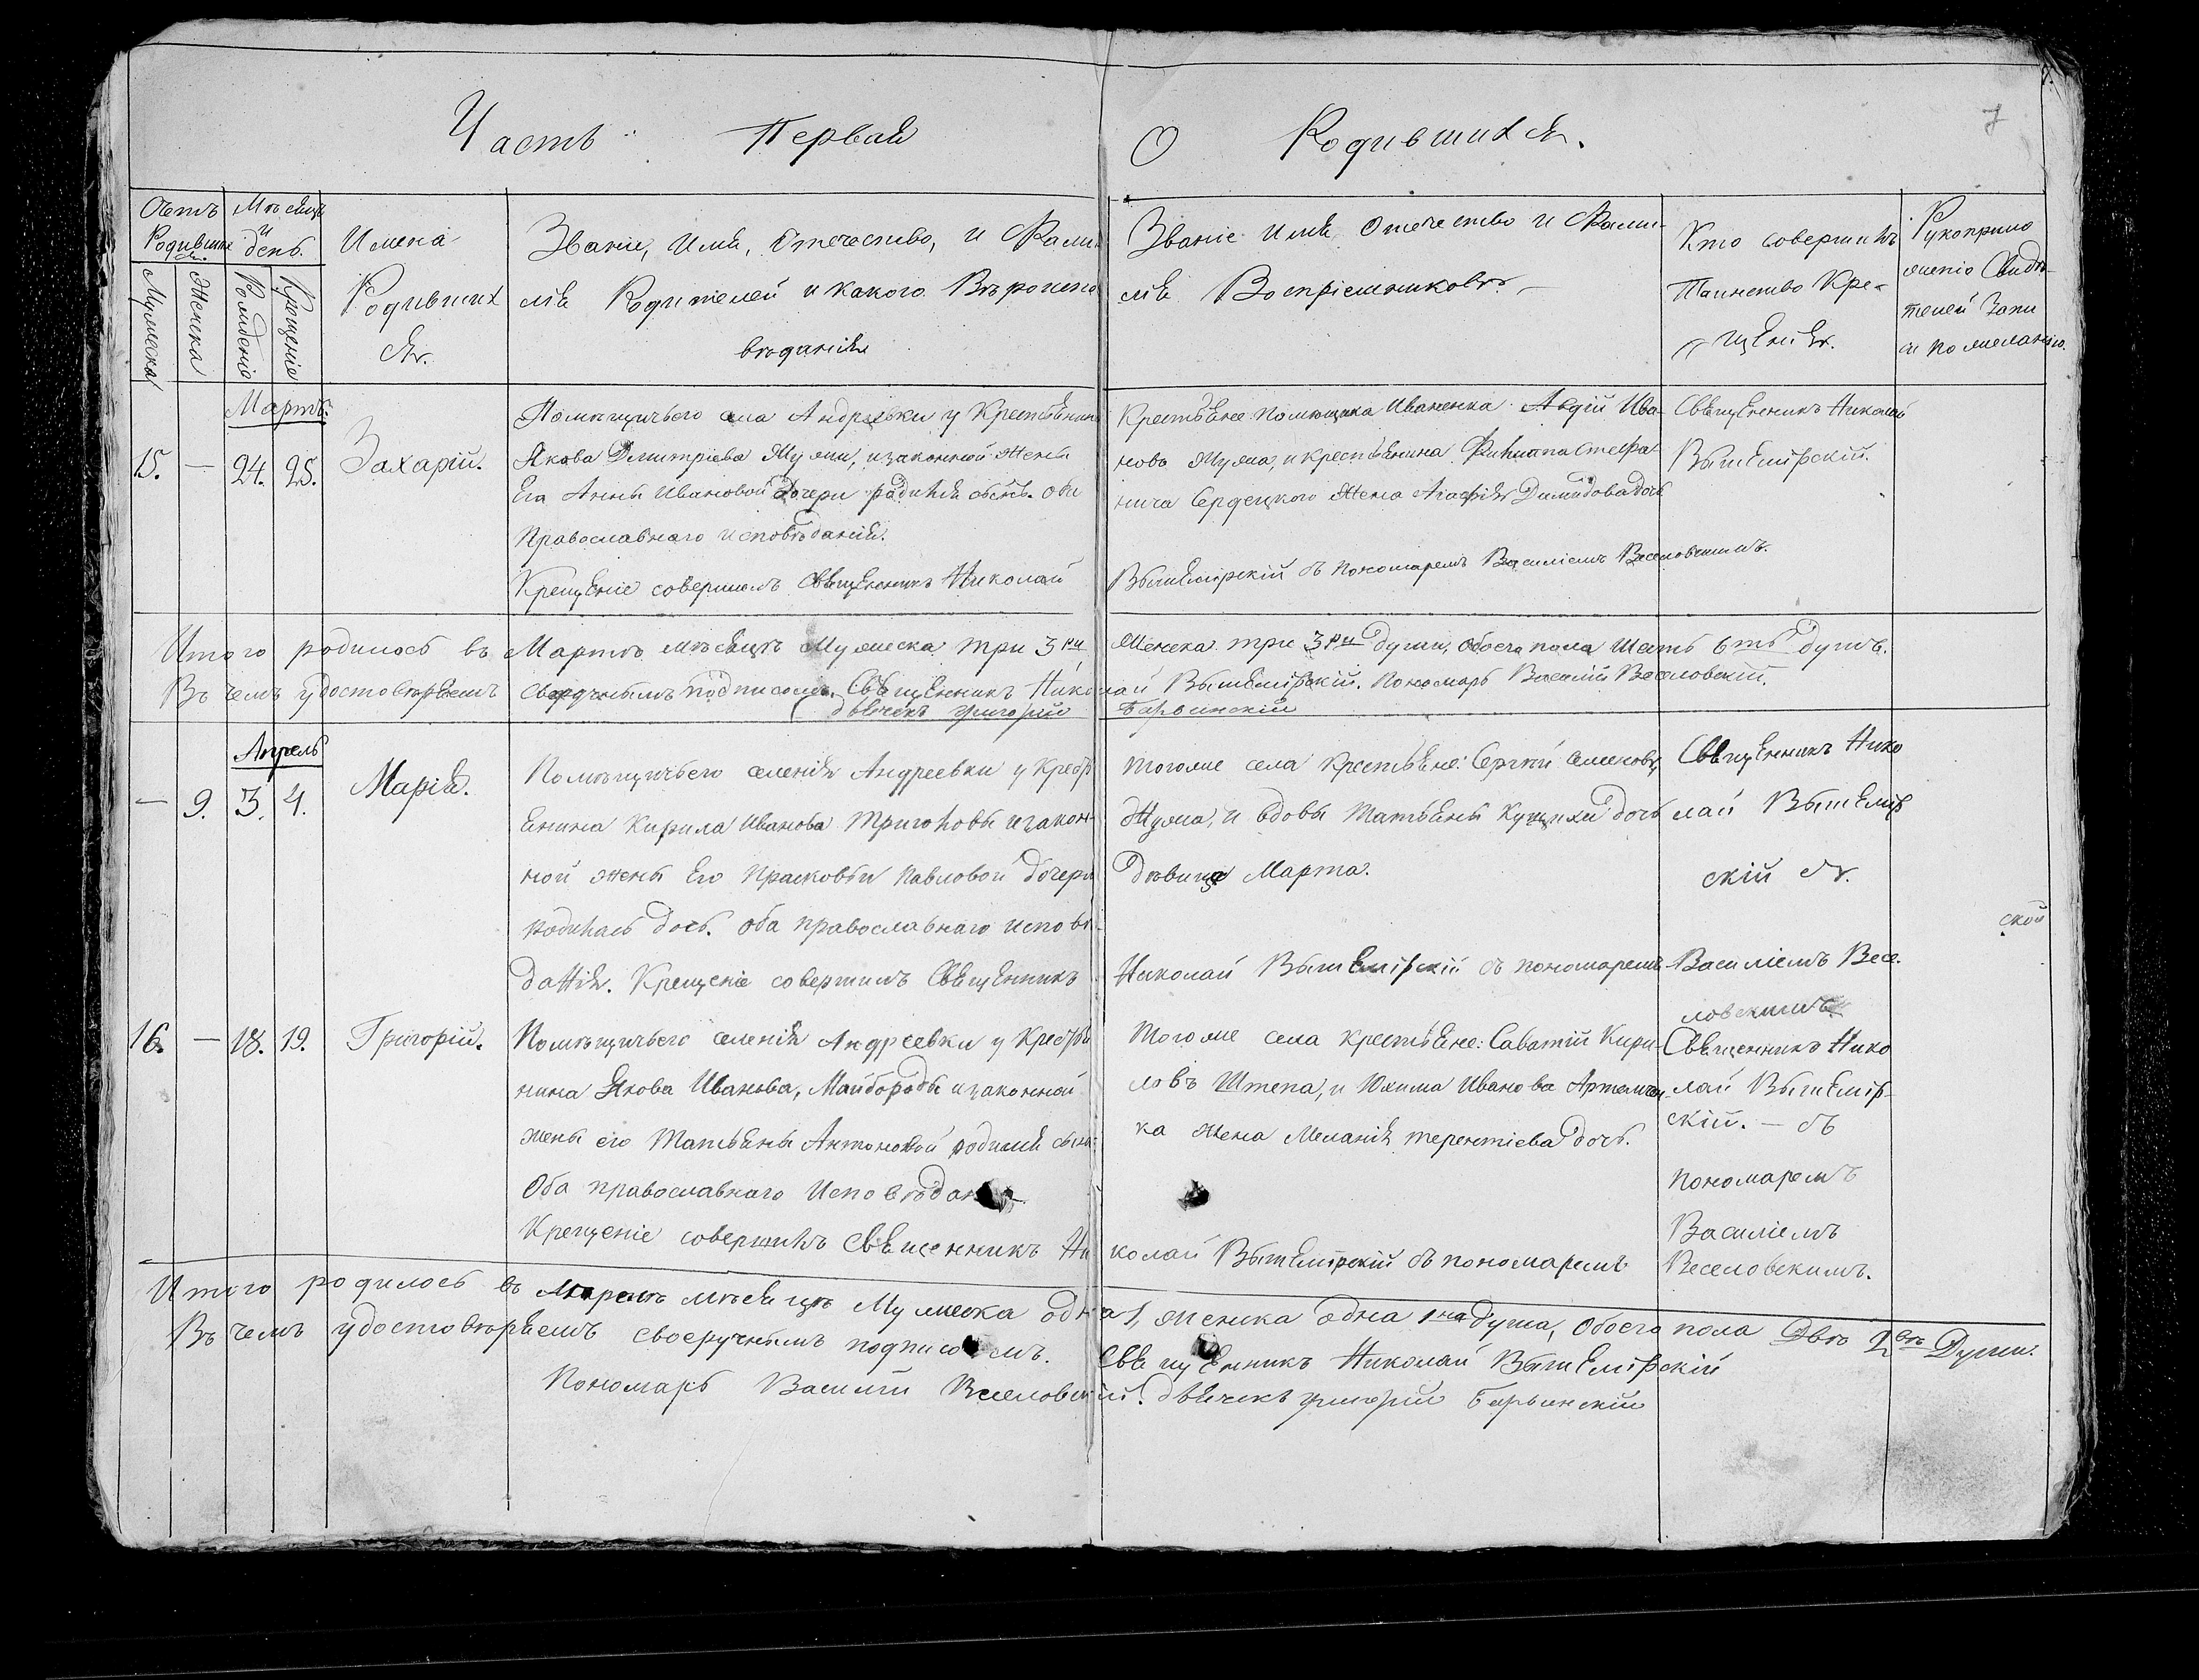 Часть Первая
О Родившихся.
7
Счетъ Родившихся.
Мужеска
Женска
Мѣсяцъ и день.
Рожденіе
Крещеніе
Имена
Родивших
ся.
Званіе, Имя, Отечество, и Фами
лія Родителей и какого Вѣроиспо
вѣданія
Званіе Имя Отечество и Фами-
лія Воспріемниковъ
Кто совершилъ
Таинство Кре-
щенія.
Рукоприло
женіе Свидѣ-
телей Запи
си по желанію.
Мартъ.
15. — 24. 25. Захарій.
Помѣщичьего села Андреевки у Крестьянина
Якова Дмитріева Жужи, изаконной Жены
Его Анны Ивановой дочери родился сынъ. оба
Православнаго исповѣданія.
Крещеніе совершилъ Священникъ Николай
Крестьяне Помѣщика Иваненка Авдій Ива-
новъ Жужа, и крестьянина Филиппа Стефа
нича Сердецкого Жена Агафія Димидова дочь
Вышемірскій съ пономаремъ Василіемъ Веселовскимъ.
Священникъ Николай
Вышемірскій.
Итого родилось въ Мартѣ мѣсяцѣ Мужеска три 3 ри Женска три 3 ри души, обоего пола Шесть 6 ть душъ.
Въ чемъ удостовѣряемъ своеручнымъ подписомъ. Священникъ Николай Вышемірскій. Пономарь Василій Веселовскій.
дьячекъ Григорій Барвинскій
Апрель
— 9. 3. 4. Марія.
Помѣщичьего селенія Андреевки у Кресть
янина Кирила Иванова Триголовы изакон-
ной жены Его Прасковьи Павловой дочери
родилась дочь. оба православнаго исповѣ-
данія. Крещеніе совершилъ Священникъ
Тогоже села Крестьяне: Сергѣй Семеновъ
Жужа, и вдовы Татьяны дочь
Дѣвица Марта.
Николай Вышемірскій съ пономаремъ
Священникъ Нико
лай Вышемір
скій съ.
Василіемъ Весе-
ловскимъ
ской
16. — 18. 19. Григорій.
Помѣщичьего селенія Андреевки у Кресть
нина Якова Иванова, Майбороды изаконной
жены его Татьяны Антоновой родился сынъ
Оба православнаго Исповѣдан
Крещеніе совершилъ Священникъ Ни
Тогоже села крестьяне: Саватій Кири-
ловъ Штепа, и Юхима Иванова
ка жена Меланія терентіева дочь.
колай Вышемірскій съ пономаремъ
Священникъ Нико
лай Вышемір-
скій. — съ
пономаремъ
Василіемъ
Веселовскимъ.
Итого родилось въ Апрелѣ мѣсяцѣ Мужеска одна 1, женска одна 1 на душа, обоего пола Двѣ 2 вѣ Души.
Въ чемъ удостовѣряемъ своеручнымъ подписомъ. Священникъ Николай Вышемірскій
Пономарь Василій Веселовскій. дьячекъ Григорій Барвинскій